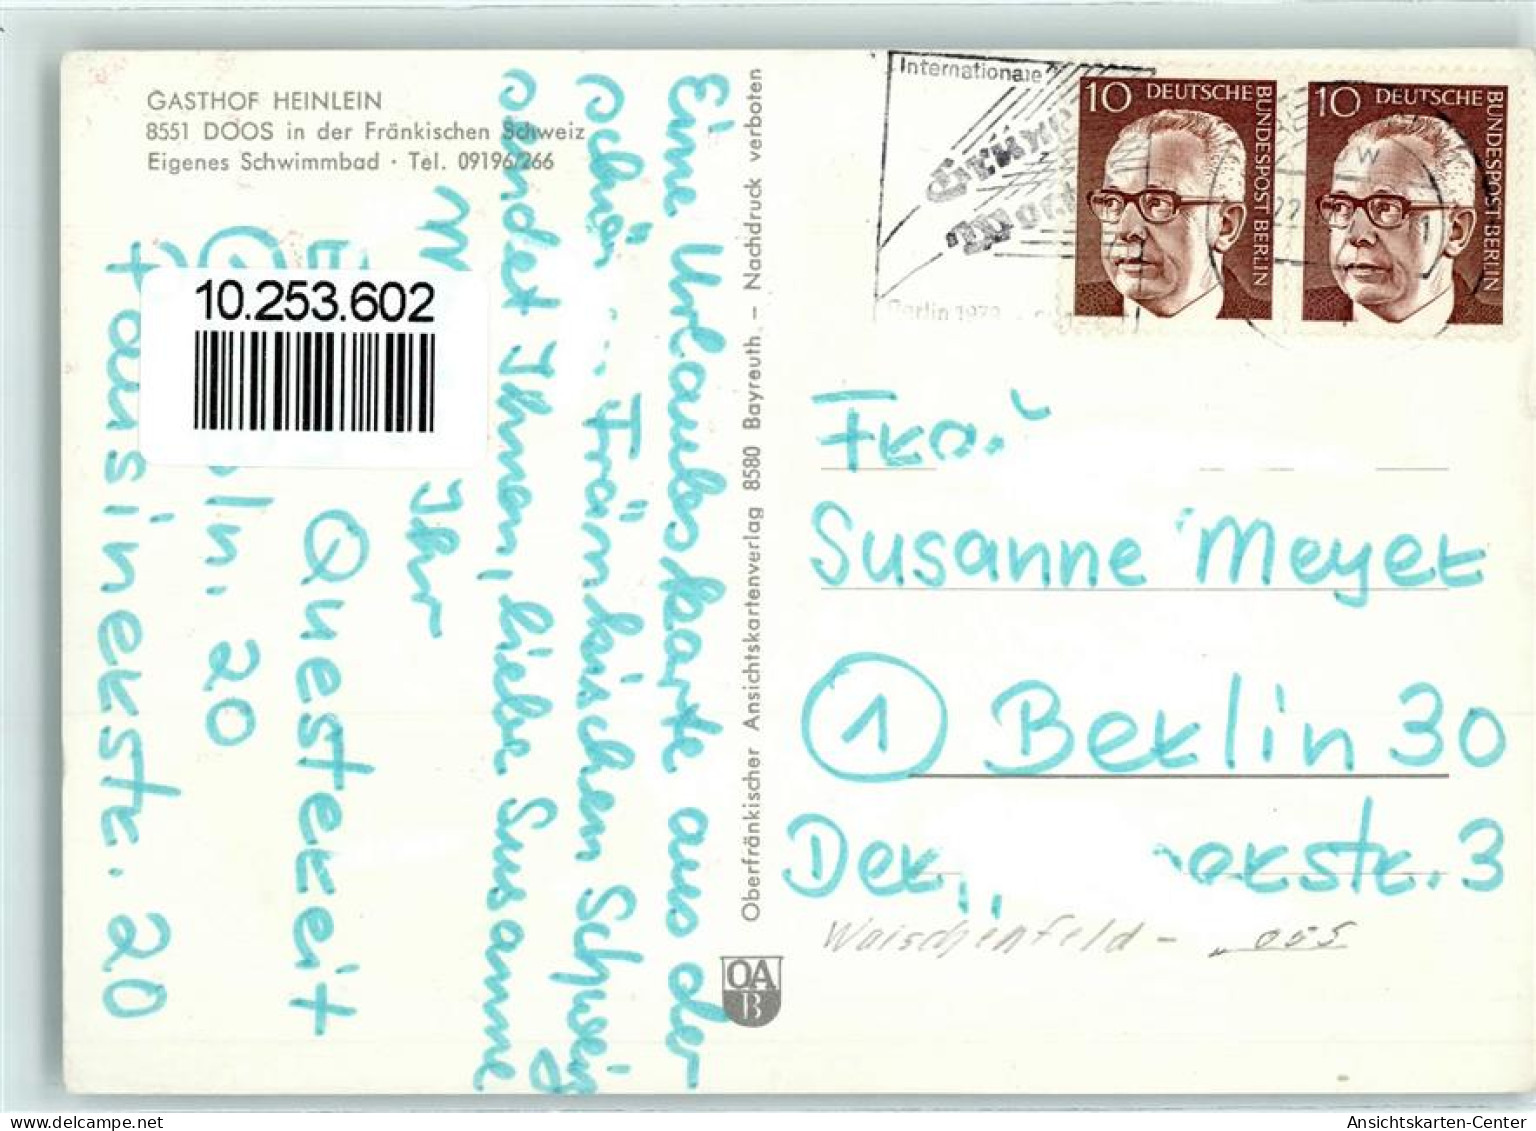 GASTHOF HEINLEIN
8551 DOOS in der Fränkischen Schweiz
Eigenes Schwimmbad · Tel. 09196/266
10.253.602
Eine Urlaubskarte aus der
schön Fränkischen Schweiz
sendet Ihnen, liebe Susanne
Ihr
Questereit
ln. 20
Tausinerstr. 20
Oberfränkischer Ansichtskartenverlag 8580 Bayreuth - Nachdruck verboten
OA
B
Internationale
Grüne
Woche
Berlin
10 DEUTSCHE BUNDESPOST BERLIN
10 DEUTSCHE BUNDESPOST BERLIN
Frau
Susanne Meyer
1 Berlin 30
Der erstr. 3
Waischenfeld - 055
delcampe.net
Ansichtskarten-Center